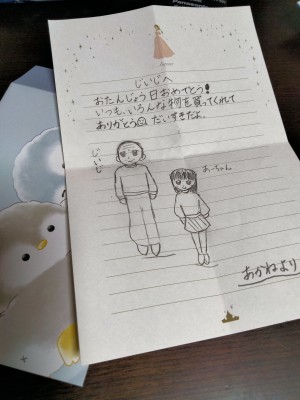 じいじへ
おたんじょう日おめでとう!
いつも、いろんな物を買ってくれて
ありがとう☺ だいすきだよ。
じいじ
あーちゃん
あかねより